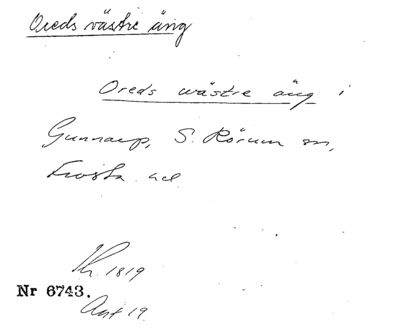 Oreds västre äng
Oreds wästre äng i
Gunnarp, S. Rörum sn,
Frosta hd
1819
Nr 6743.
19